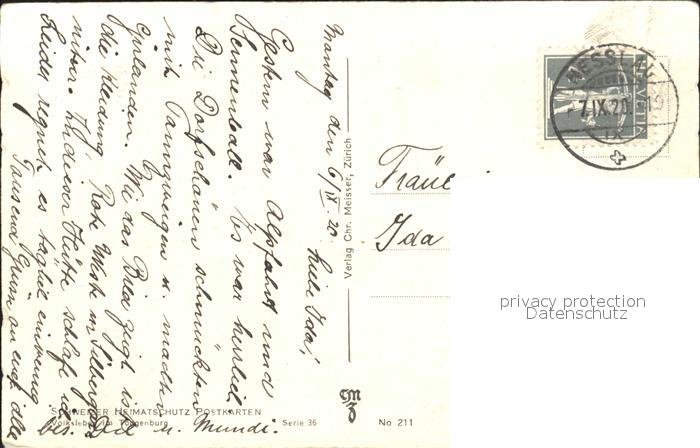 Montag den 6/IX. 20.
Liebe Ida!
Gestern war Alpfahrt und
Sennenball. Es war herrlich.
Die Dorfschönen schmückten
mit Tannzweigen u. machten
Guirlanden. Wie das Bild zeigt ist
die Kleidung, Rote Weste m. Silber
In dieser Hütte schlafe ich
Leider regnet es täglich ein wenig
Tausend Grüsse an euch alle
u. Mundi.
Verlag Chr. Meisser, Zürich
SCHWEIZER HEIMATSCHUTZ POSTKARTEN
Volksleben im Toggenburg
Serie 36
No 211
NESSLAU
7.IX.20.
HELVETIA
Fräul
Ida
privacy protection
Datenschutz